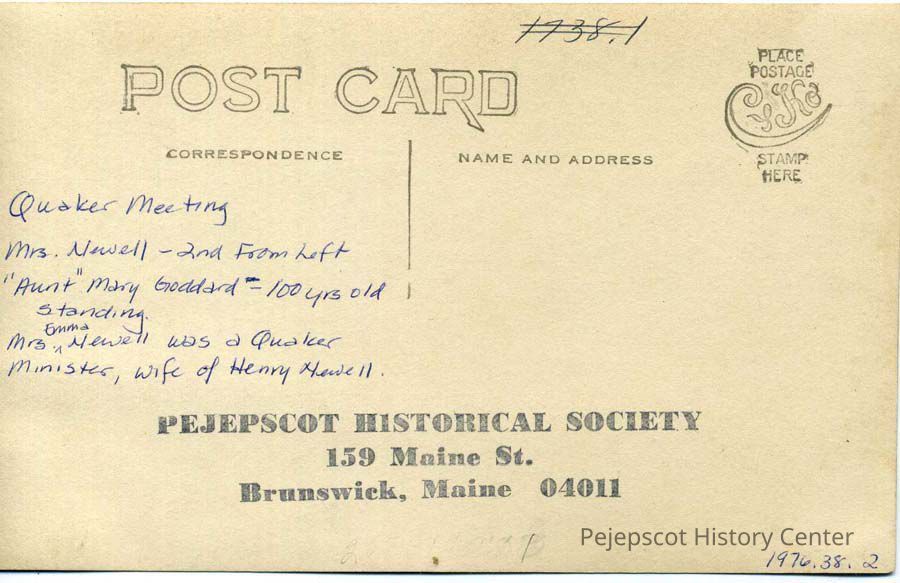 1738.1
POST CARD
PLACE
POSTAGE
STAMP
HERE
CORRESPONDENCE
NAME AND ADDRESS
Quaker Meeting
Mrs. Newell - 2nd From Left
"Aunt" Mary Goddard - 100 yrs old
standing.
Mrs. Emma Newell was a Quaker
Minister, wife of Henry Newell.
PEJEPSCOT HISTORICAL SOCIETY
159 Maine St.
Brunswick, Maine 04011
Pejepscot History Center
1976.38.2